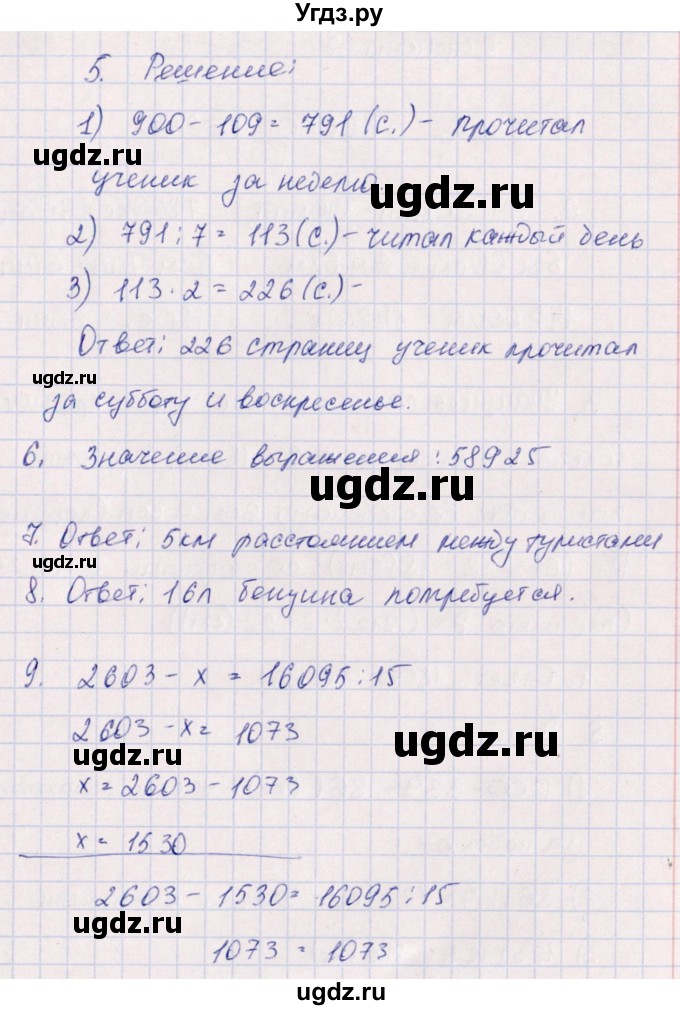 Угдз.ру
5. Решение:
1) 900 - 109 = 791 (с.) - прочитал
ugdz.ru
ученик за неделю.
ugdz.ru
2) 791 : 7 = 113 (с.) - читал каждый день
3) 113 · 2 = 226 (с.) -
Ответ: 226 страниц ученик прочитал
ugdz.ru
за субботу и воскресенье.
6. Значение выражения : 58925
ugdz.ru
7. Ответ: 5км расстоянием между туристами
ugdz.ru
8. Ответ: 16л бензина потребуется.
9. 2603 - x = 16095 : 15
2603 - x = 1073
ugdz.ru
ugdz.ru
x = 2603 - 1073
x = 1530
2603 - 1530 = 16095 : 15
ugdz.ru
1073 = 1073
ugdz.ru